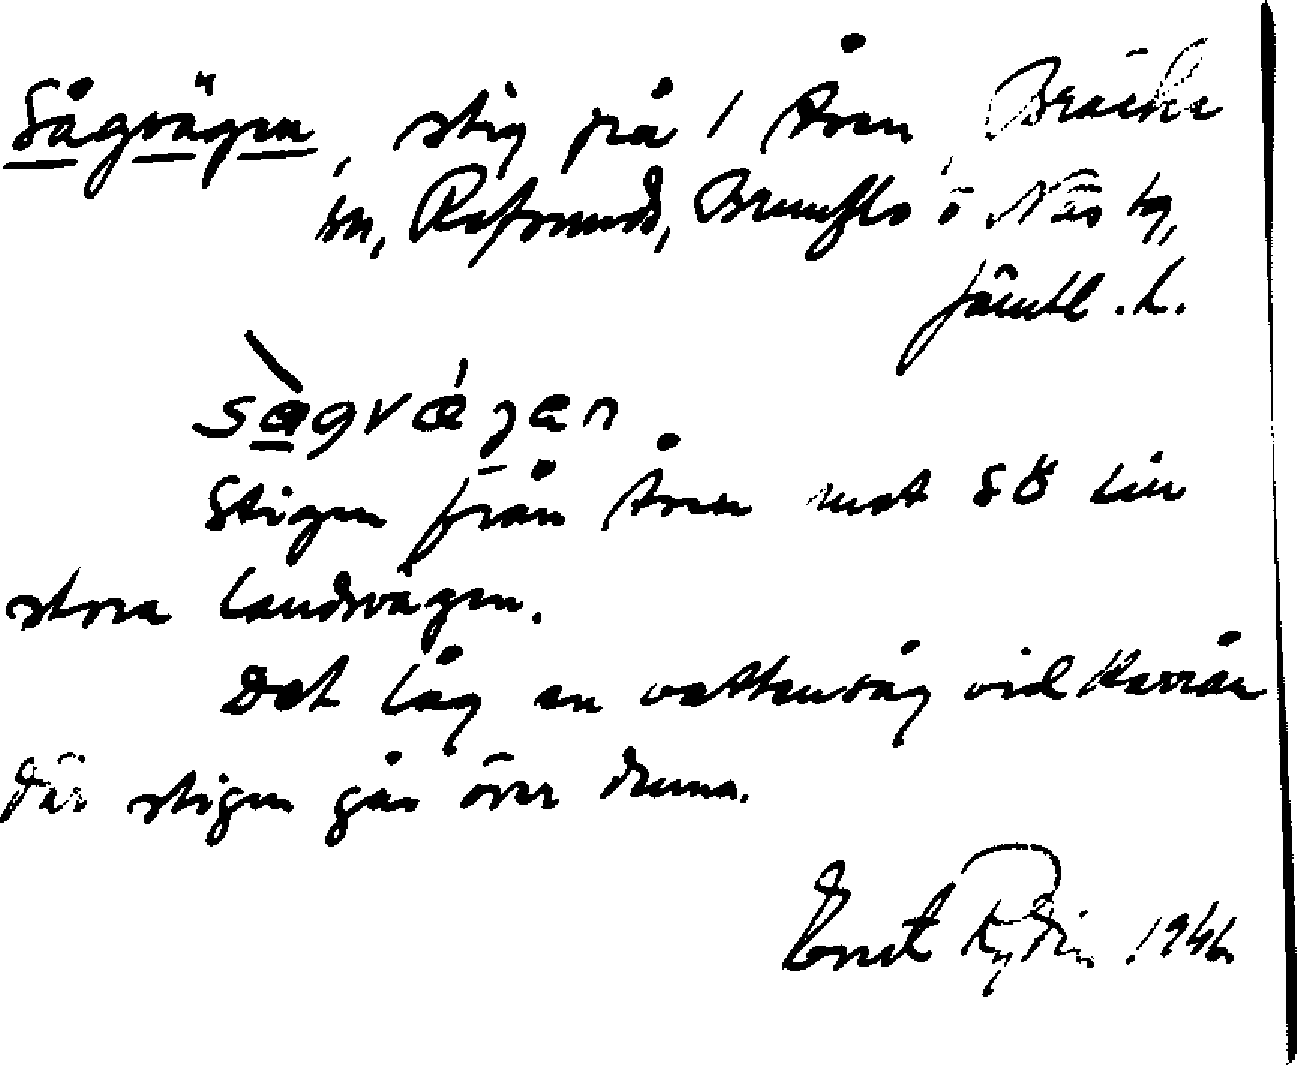 Sågvägen, stig på / Åsen, Bräcke
sn, Refsunds, Brunflo o Näs tg,
Jämtl. l.
sågvæ̀gen
Stigen från Åsen mot SÖ till
stora landsvägen.
Det låg en vattensåg vid
där stigen går över denna.
Ernst Rydin 1946